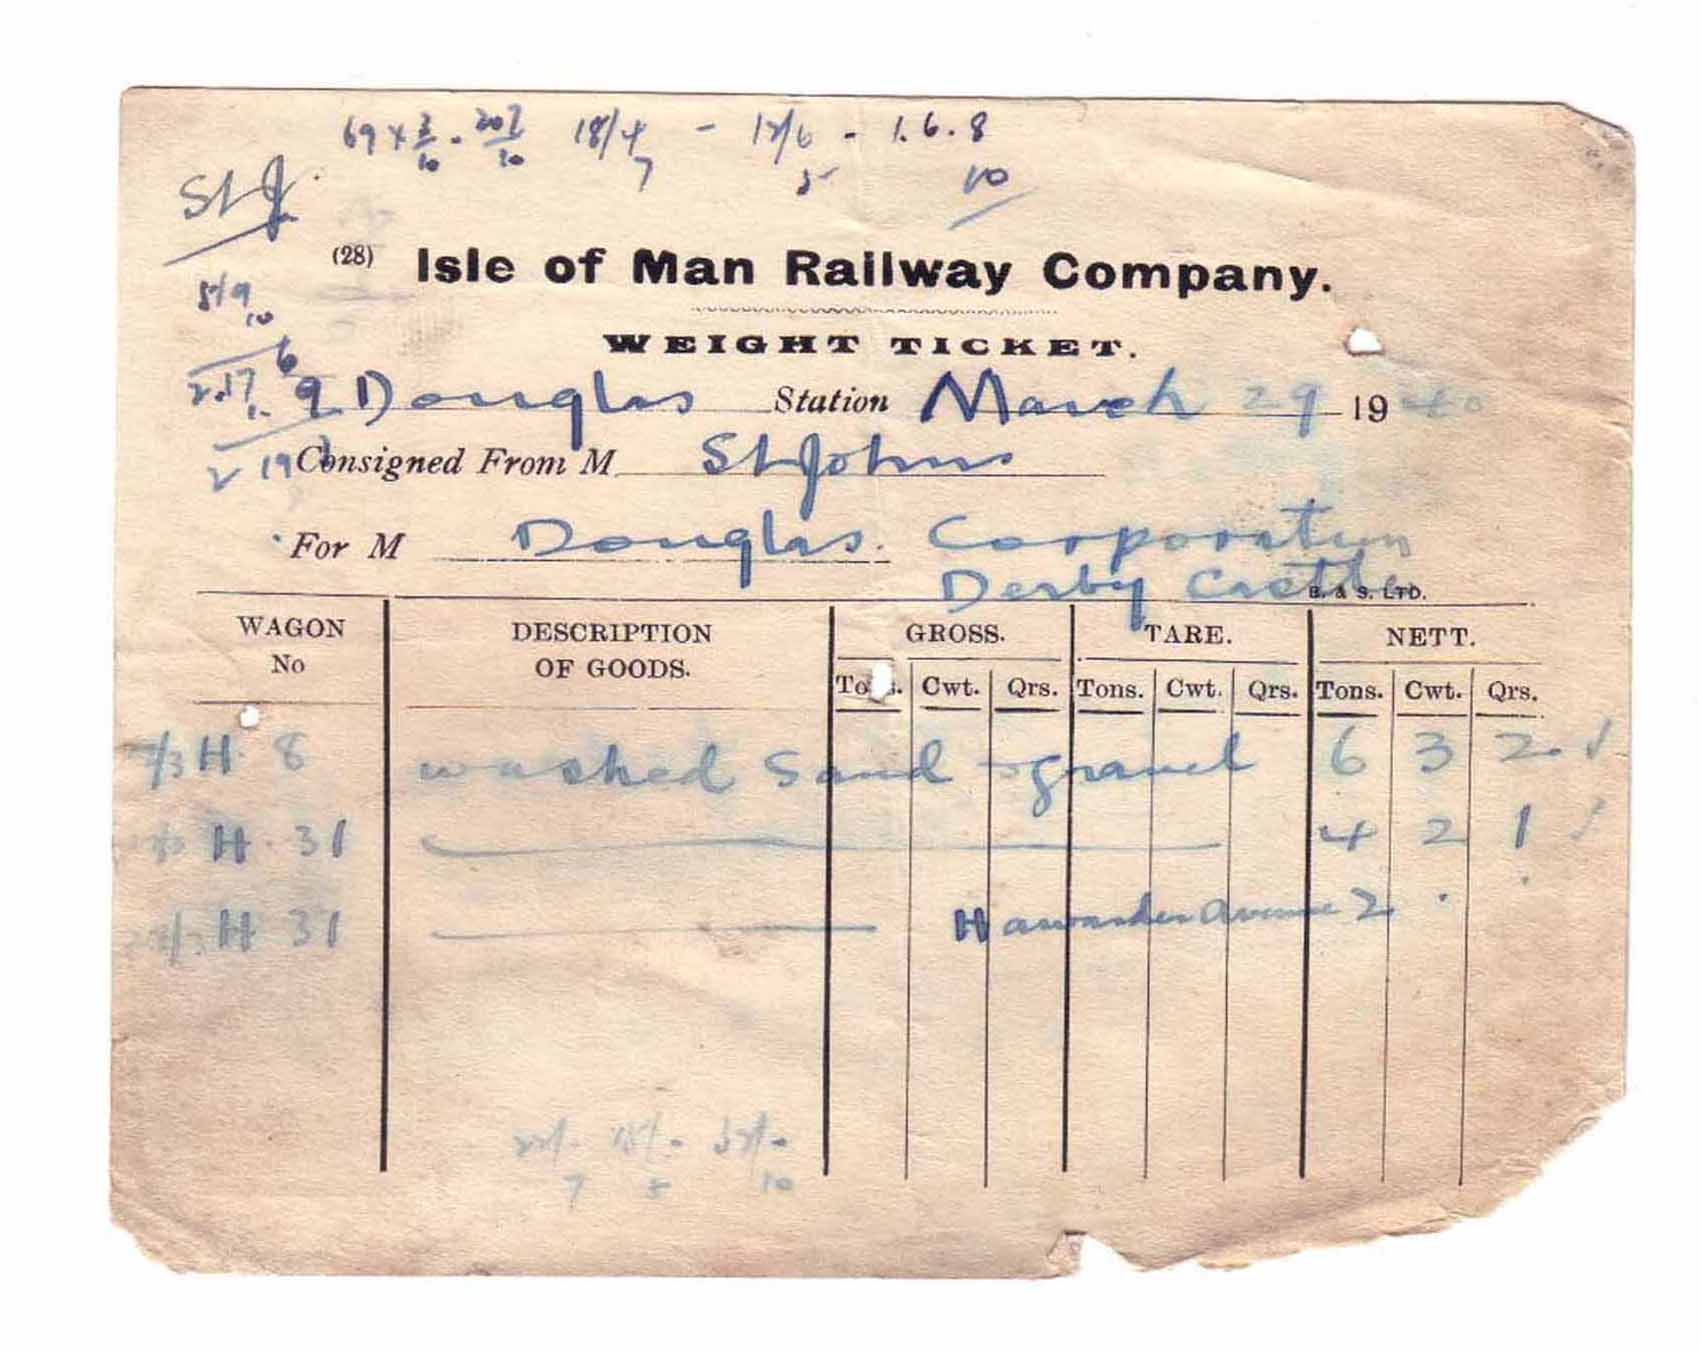 69 x 3/10 - 207/10 18/4 - 12/6 - 1.6.8
7 5 10
St J.
(28) Isle of Man Railway Company.
5/9
10
WEIGHT TICKET.
6
2.17. 9 Douglas Station March 29 1940
2 19 Consigned From M St Johns
For M Douglas. Corporation
Derby Castle
B. & S. LTD.
WAGON No DESCRIPTION OF GOODS. GROSS. TARE. NETT.
Tons. Cwt. Qrs. Tons. Cwt. Qrs. Tons. Cwt. Qrs.
H. 8 washed Sand & gravel 6 3 2
H. 31 4 2 1
H 31 Hawarden Avenue 2
7 10